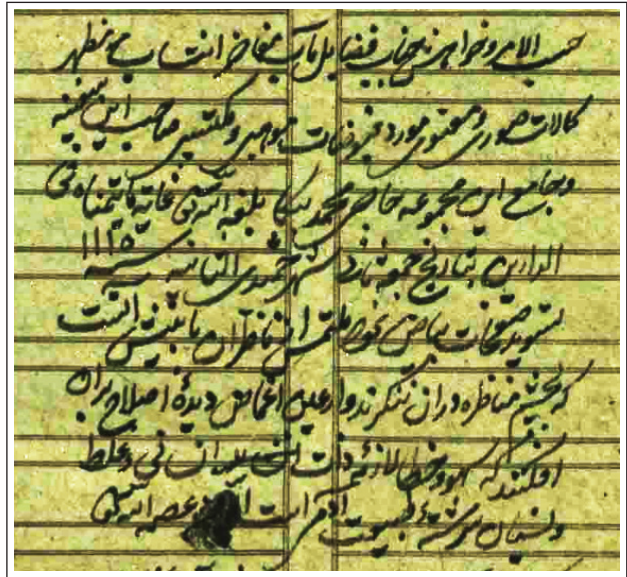 حسب الامر و خواهش جناب فضایل مآب مفاخر انتساب مظهر
کمالات صوری و معنوی مورد فیوضات موهبی و مکتسبی صاحب این سفینه
و جامع این مجموعه حاجی محمد بیکا بلغه الله تعالی غایة ما یتمناه فی
الدارین بتاریخ جمعه شهر جمادی الثانیه سنه ۱۱۲۵
بتسوید صفحات بیاض ملتمس از ناظران با بینش آنست
که بچشم مناظره در آن ننگرند و از عین اغماض دیدهٔ اصلاح بر آن
افکنند که سهو و خطا لازمهٔ ذات انسان و غلط
و نسیان سرشته طبیعت آدم است عصمه الله تعالی